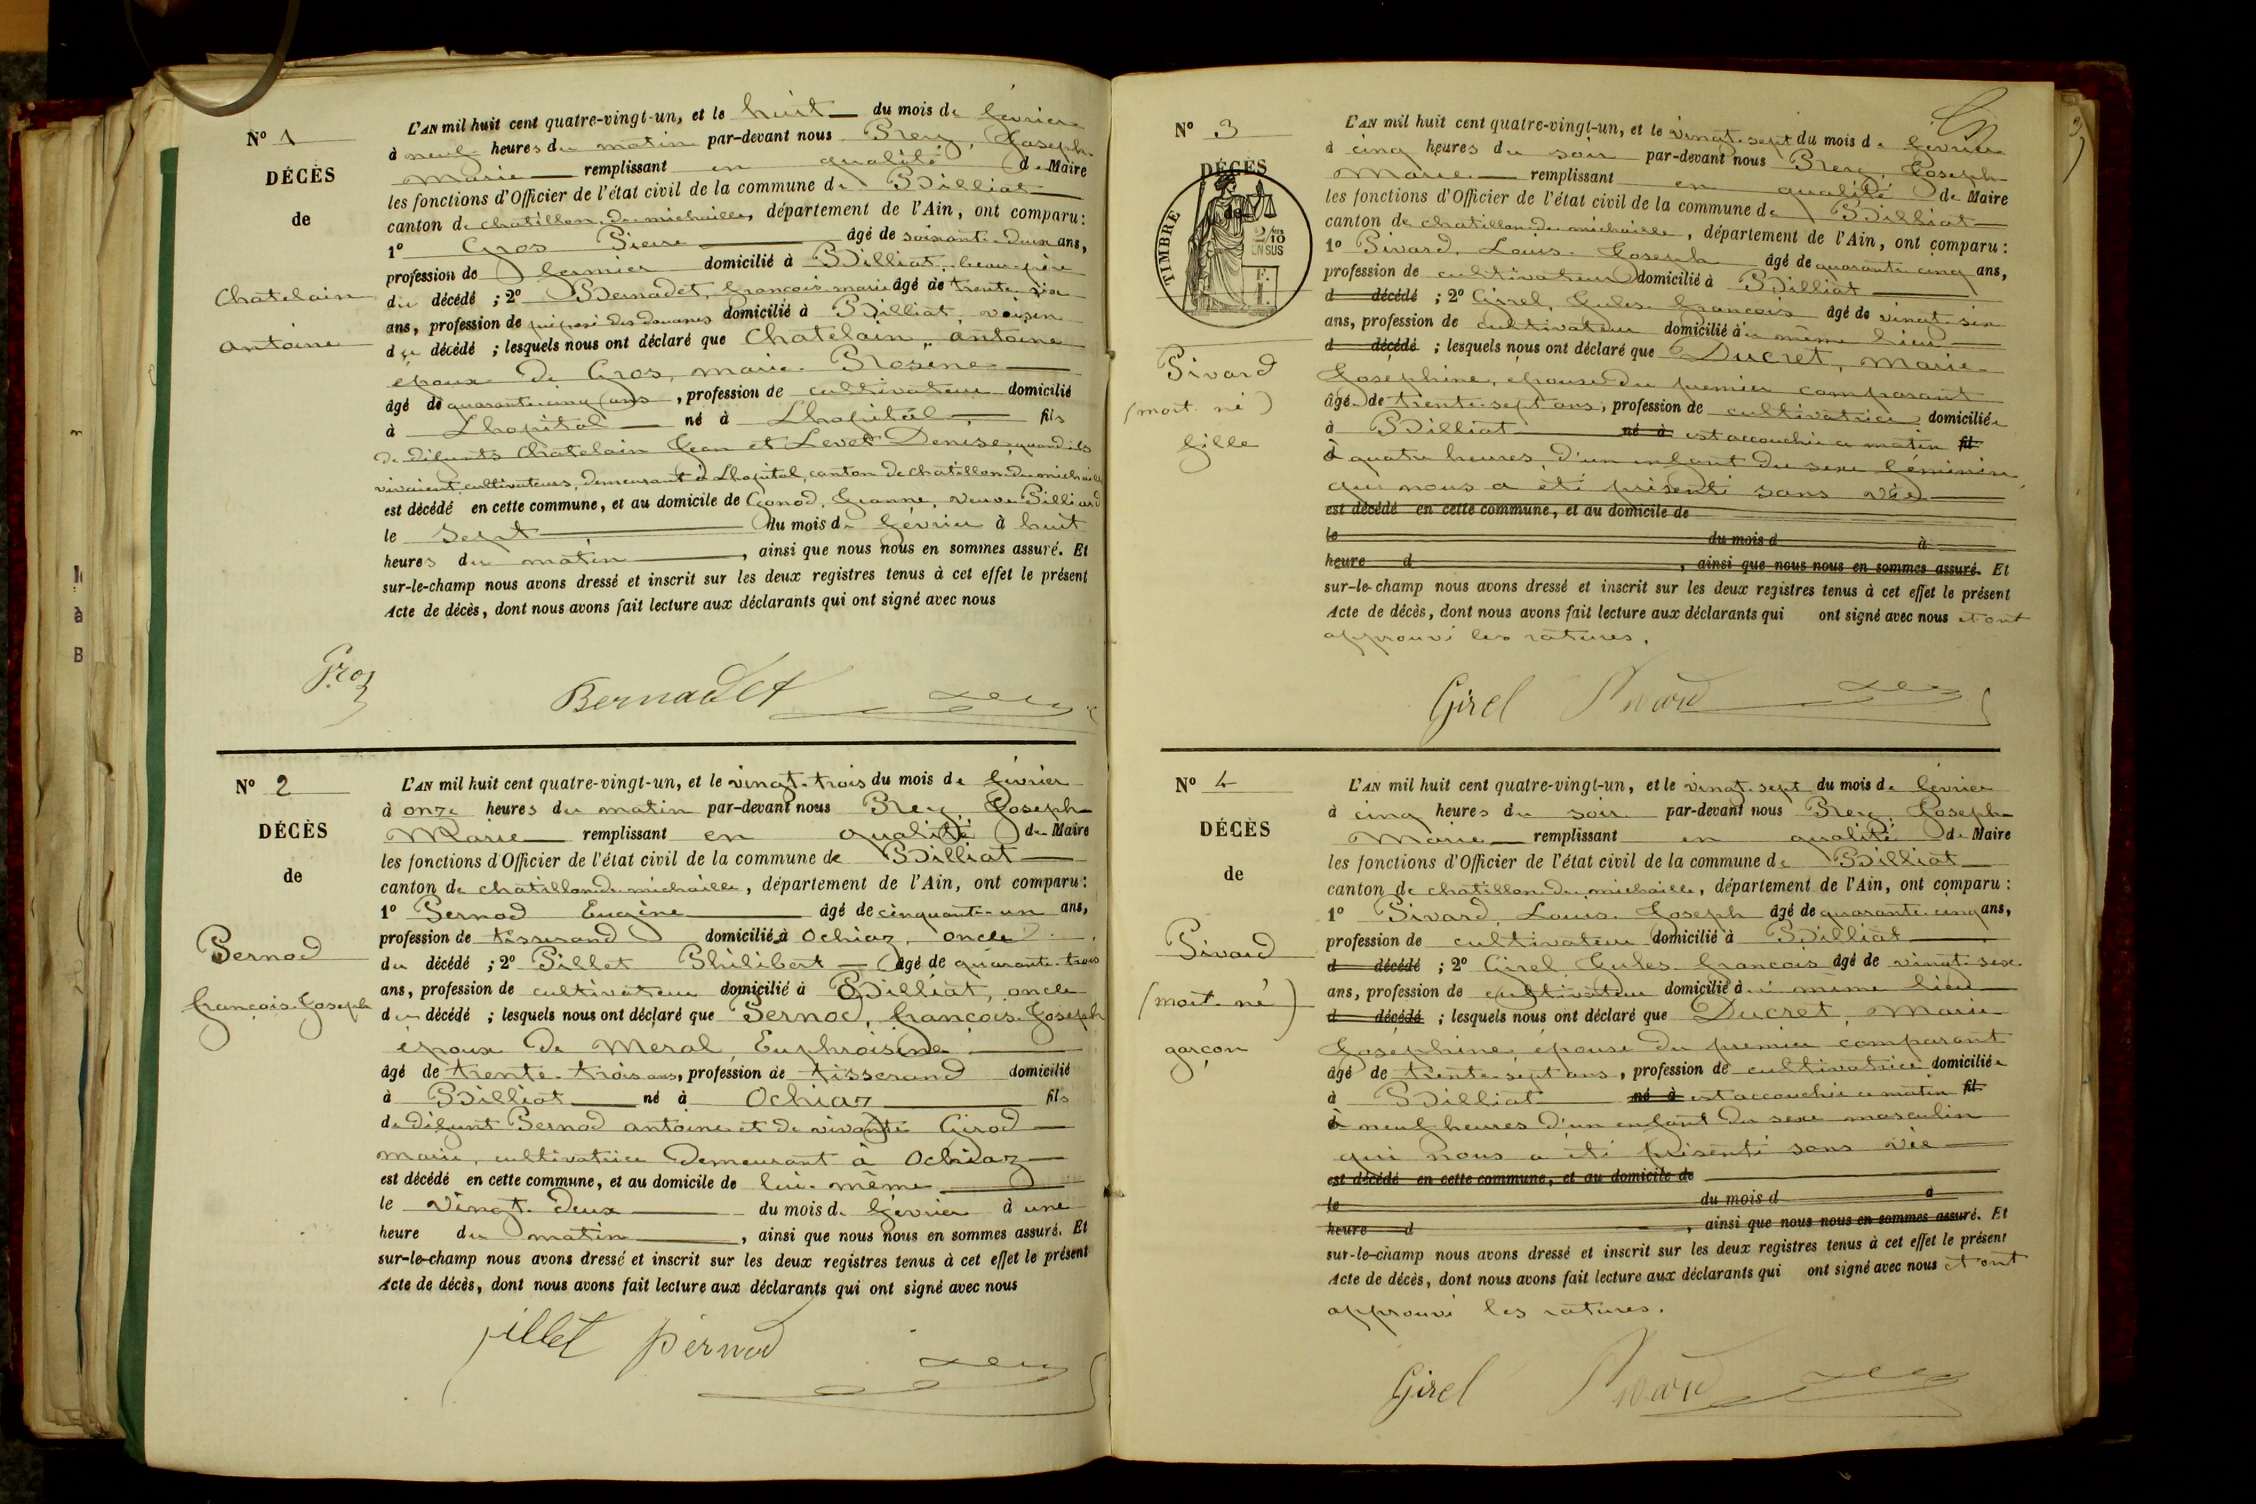 N° 1
DÉCÈS
de
Chatelain
antoine
L'AN mil huit cent quatre-vingt-un, et le huit du mois de février
à neuf heures du matin par-devant nous Rey, Joseph
Marie remplissant en qualité de Maire
les fonctions d'Officier de l'état civil de la commune de Billiat
canton de chatillon de michaille, département de l'Ain, ont comparu:
1° Gros Pierre âgé de soixante-deux ans,
profession de fermier domicilié à Billiat, beau-père
du décédé ; 2° Bernadet, françois marie âgé de trente six
ans, profession de préposé des douanes domicilié à Billiat, voisin
du décédé ; lesquels nous ont déclaré que Chatelain, antoine
époux de Gros, marie Rosine
âgé de quarante cinq ans, profession de cultivateur domicilié
à Lhopital né à Lhopital fils
de défunts Chatelain Jean et Levet Denise, quand ils
vivaient cultivateurs, demeurant à Lhopital, canton de Chatillon de michaille
est décédé en cette commune, et au domicile de Gonod, Jeanne, veuve Billiard
le sept du mois de février à huit
heures du matin, ainsi que nous nous en sommes assuré. Et
sur-le-champ nous avons dressé et inscrit sur les deux registres tenus à cet effet le présent
Acte de décès, dont nous avons fait lecture aux déclarants qui ont signé avec nous
Gros Bernadet Rey
N° 2
DÉCÈS
de
Pernod
françois-Joseph
L'AN mil huit cent quatre-vingt-un, et le vingt-trois du mois de février
à onze heures du matin par-devant nous Rey, Joseph
Marie remplissant en qualité de Maire
les fonctions d'Officier de l'état civil de la commune de Billiat
canton de chatillon de michaille, département de l'Ain, ont comparu:
1° Pernod Eugène âgé de cinquante-un ans,
profession de tisserand domicilié à Ochiaz, oncle
du décédé ; 2° Pillet Philibert âgé de quarante-trois
ans, profession de cultivateur domicilié à Billiat, oncle
du décédé ; lesquels nous ont déclaré que Pernod, françois-Joseph
époux de Meral, Euphroisine
âgé de trente-trois ans, profession de tisserand domicilié
à Billiat né à Ochiaz fils
de défunt Pernod antoine et de vivante Girod
marie, cultivatrice demeurant à Ochiaz
est décédé en cette commune, et au domicile de lui-même
le vingt-deux du mois de février à une
heure du matin, ainsi que nous nous en sommes assuré. Et
sur-le-champ nous avons dressé et inscrit sur les deux registres tenus à cet effet le présent
Acte de décès, dont nous avons fait lecture aux déclarants qui ont signé avec nous
pillet pernod Rey
N° 3
DÉCÈS
de
TIMBRE
2/10
EN SUS
Pivard
(mort-né)
fille
L'AN mil huit cent quatre-vingt-un, et le vingt-sept du mois de février
à cinq heures du soir par-devant nous Rey, Joseph
Marie remplissant en qualité de Maire
les fonctions d'Officier de l'état civil de la commune de Billiat
canton de chatillon de michaille, département de l'Ain, ont comparu:
1° Pivard, Louis-Joseph âgé de quarante-cinq ans,
profession de cultivateur domicilié à Billiat
d décédé ; 2° Girel, Jules françois âgé de vingt-six
ans, profession de cultivateur domicilié au même lieu
d décédé ; lesquels nous ont déclaré que Ducret, marie
Joséphine, épouse du premier comparant
âgé de trente-sept ans, profession de cultivatrice domiciliée
à Billiat né à est accouchée ce matin fil
à quatre heures, d'un enfant du sexe féminin
qui nous a été présenté sans vie
est décédé en cette commune, et au domicile de
le du mois d à
heure d, ainsi que nous nous en sommes assuré. Et
sur-le-champ nous avons dressé et inscrit sur les deux registres tenus à cet effet le présent
Acte de décès, dont nous avons fait lecture aux déclarants qui ont signé avec nous et ont
approuvé les ratures.
Girel Pivard Rey
N° 4
DÉCÈS
de
Pivard
(mort-né)
garçon
L'AN mil huit cent quatre-vingt-un, et le vingt-sept du mois de février
à cinq heures du soir par-devant nous Rey, Joseph
Marie remplissant en qualité de Maire
les fonctions d'Officier de l'état civil de la commune de Billiat
canton de chatillon de michaille, département de l'Ain, ont comparu:
1° Pivard, Louis-Joseph âgé de quarante-cinq ans,
profession de cultivateur domicilié à Billiat
d décédé ; 2° Girel, Jules françois âgé de vingt-six
ans, profession de cultivateur domicilié au même lieu
d décédé ; lesquels nous ont déclaré que Ducret, Marie
Joséphine, épouse du premier comparant
âgé de trente-sept ans, profession de cultivatrice domiciliée
à Billiat né à est accouchée ce matin fil
à neuf heures d'un enfant du sexe masculin
qui nous a été présenté sans vie
est décédé en cette commune, et au domicile de
le du mois d à
heure d, ainsi que nous nous en sommes assuré. Et
sur-le-champ nous avons dressé et inscrit sur les deux registres tenus à cet effet le présent
Acte de décès, dont nous avons fait lecture aux déclarants qui ont signé avec nous et ont
approuvé les ratures.
Girel Pivard Rey